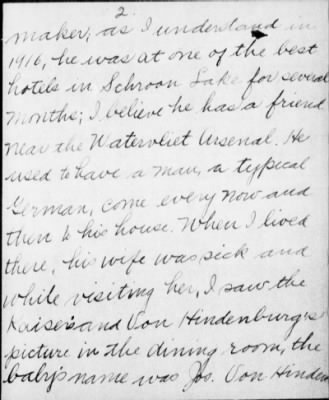 2.
maker; as I understand in
1916, he was at one of the best
hotels in Schroon Lake for several
months; I believe he has a friend
near the Watervliet Arsenal. He
used to have a man, a typical
German, come every now and
then to his house. When I lived
there, his wife was sick and
while visiting her, I saw the
Kaiser's and Von Hindenburg's
picture in the dining room, the
baby's name was Jos. Von Hinden